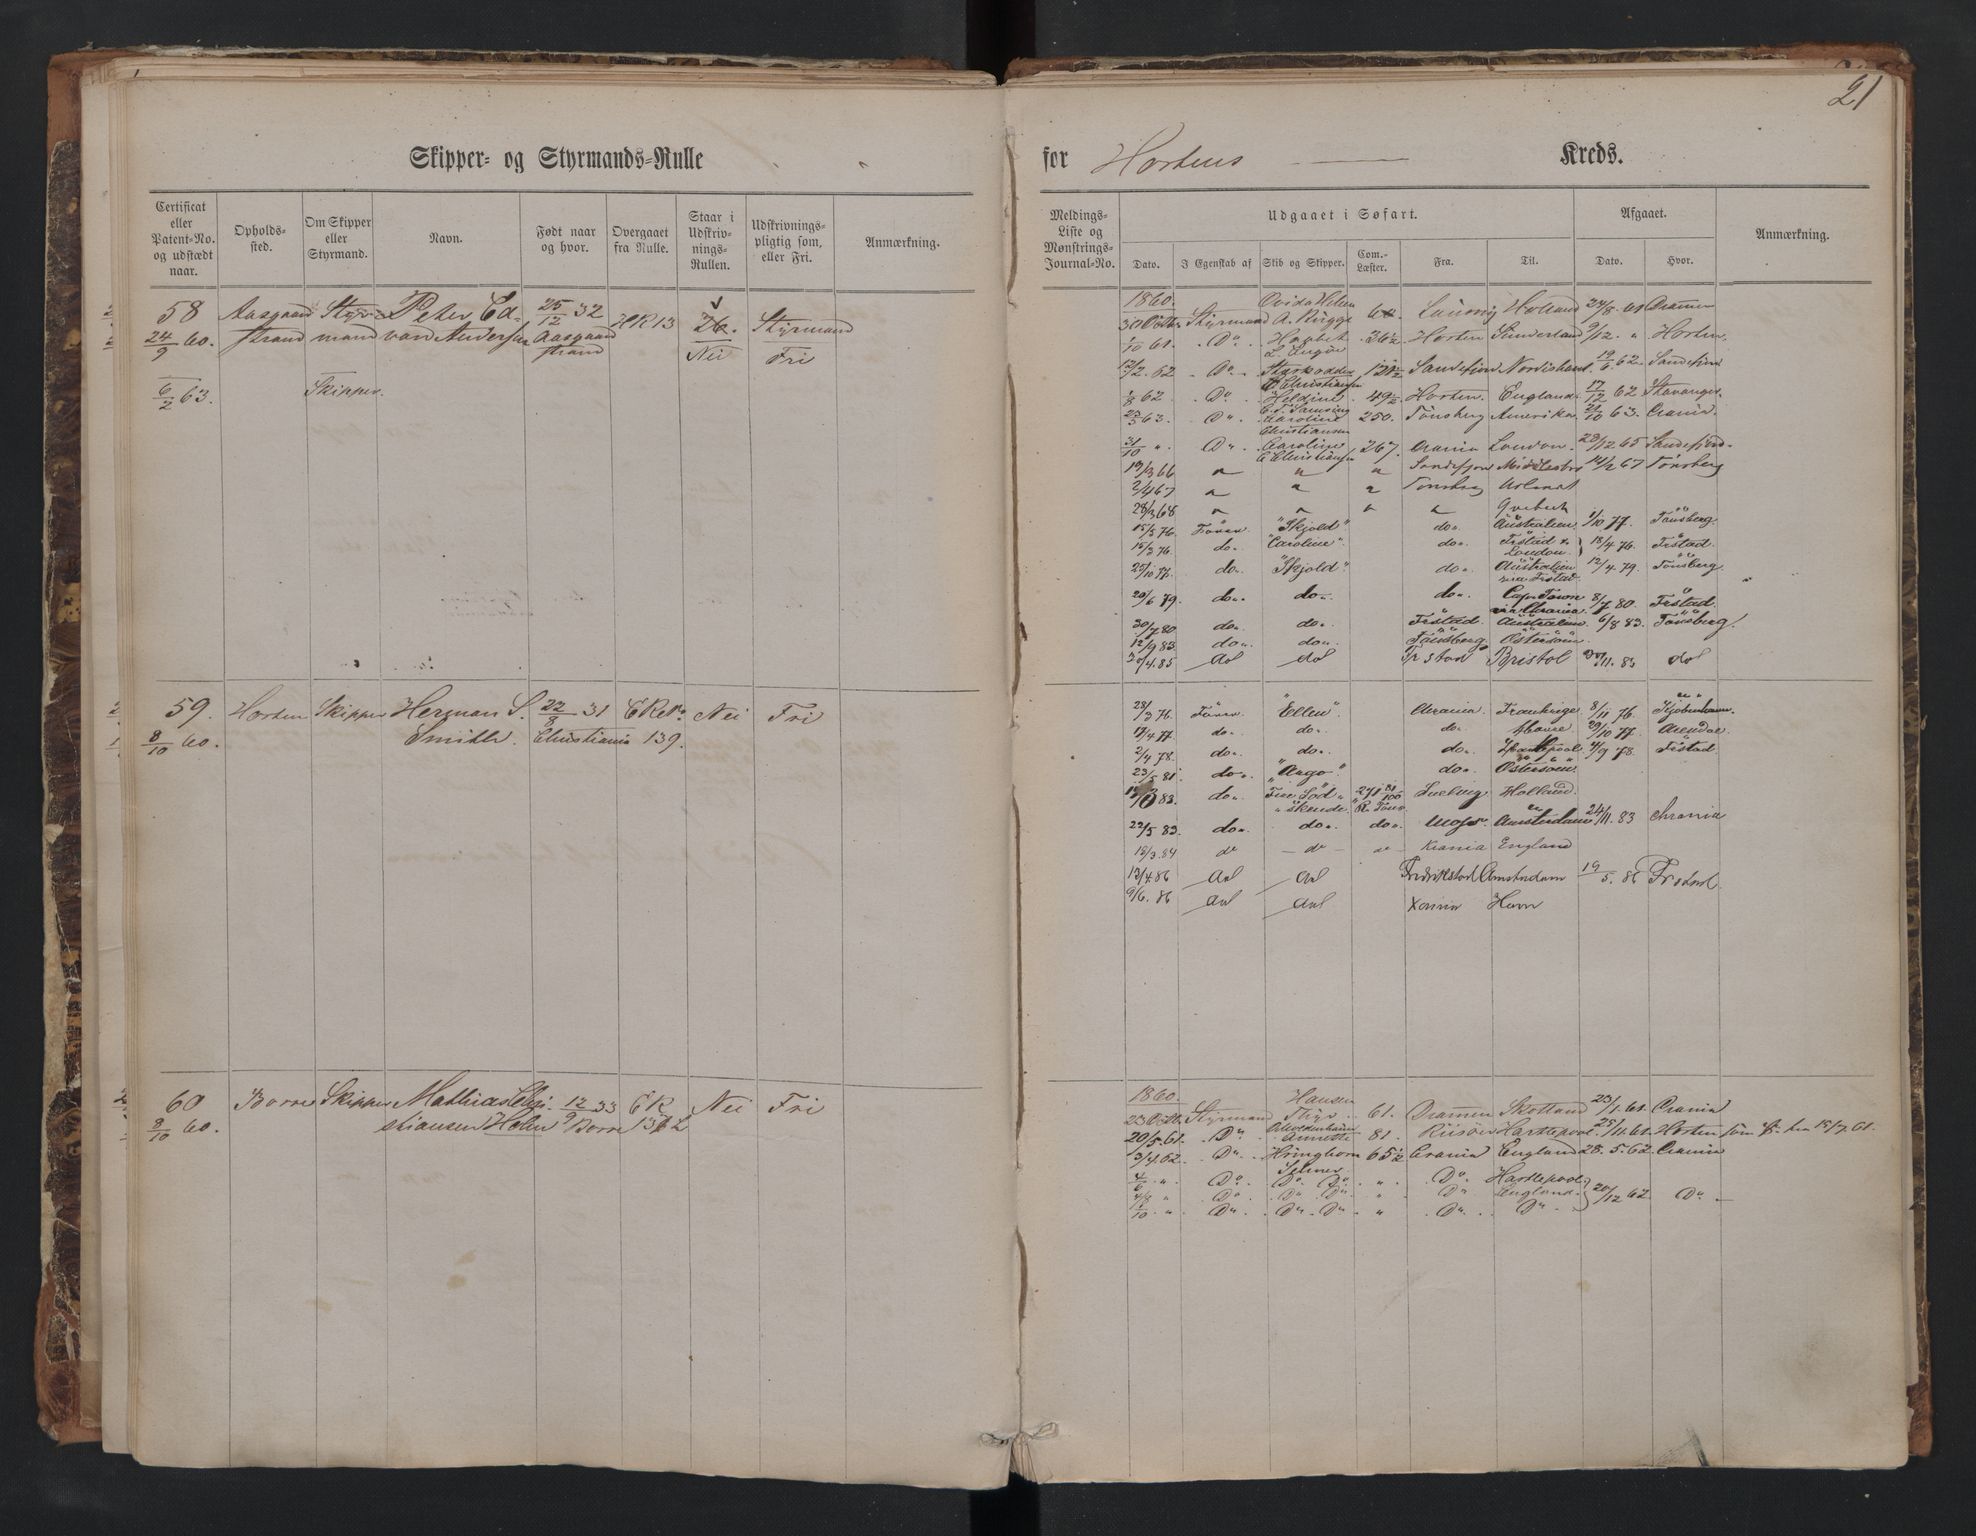 21
Skipper- og Styrmands-Rulle
for Hortens Kreds.
Certificat eller Patent-No. og udstædt naar.
Opholds-sted.
Om Skipper eller Styrmand.
Navn.
Født naar og hvor.
Overgaaet fra Rulle.
Staar i Udskriv-nings-Rullen.
Udskrivnings-pligtig som, eller Fri.
Anmærkning.
Meldings-Liste og Mønstrings-Journal-No.
Udgaaet i Søfart.
Afgaaet.
Anmærkning.
Dato. I Egenskab af Skib og Skipper. Com.-Læster. Fra. Til. Dato. Hvor.
58 Aasgaard Styr- Peter Ed- 25/12 32 HR 13 26. Styrmand
24/9 60. strand mand vard Andersen Aasgaard strand Nei Fri
6/2 63. Skipper.
1860.
30 Octbr Styrmand A. Rugge Holland 24/8 61 Dramen
1/10 61. Do Haabet 36½ Horten Sunderland 9/12 " Horten
12/2 62 Do Starkodder Sandefjord 19/6 62. Sandefjord
C Christiansen
1/8 62. Do Heldine 49½ Horten. England. 17/12 62 Stavanger
23/3 63. Do Caroline 250. Tønsberg Amerika. 21/10 63. Crania.
Christiansen
31/10 " Do Caroline 267. Crania London. 23/12 65 Sandefjord
C Christiansen
19/3 66 " " " Sandefjord Middlesbro 14/12 67 Tønsberg
2/4 67 " " " Tønsberg
28/3 68 " " " " Qvebeck
15/3 76. Fører "Skjold". do. Australien 1/10 77. Tønsberg
15/3 76. do. "Caroline". do. Frstad & London. 18/4 76. Frstad.
25/10 77. do. "Skjold". do. Australien via Frstad. 12/4 79. Tønsberg
20/6 79. do. do. do. Cap Town via Chrania. 8/7 80. Frstad
30/7 80 do. do. Frstad Australien 6/8 83. Tønsberg.
12/9 83 do. do. Tønsberg Østersøen
30/4.85 do do Frstad Bristol 30/11. 85 do
59. Horten Skipper Herman S. 22/8 31 CR No Nei Fri
8/10 60. Smith. Christiania 139.
28/3 76. Fører "Ellen". Chrania. 8/11 76. Kjøbenhavn
17/4 77. do. do. do. Havre 29/10 77. Arendal
2/4 78. do. do. do. Hartlepool 4/9 78. Frstad
23/5 81. do. "Argo". do. Østersøen
83. do. Fire Sød- 271 Holland.
skende. R. Tons.
22/5 83. do. do. do. Moss. Amsterdam 24/11. 83 Chrania
18/3.84 do do do Krania England
13/4.86 do do Fredrikstad Amsterdam 19/5. 86 Frstad.
9/6. 86 do do Xania Havre
60 Borre Skipper Mathias Chri- 12/9 33 CR Nei Fri
8/10 60. stiansen Holm Borre
1860. Hansen
23 Octbr Styrmand Thyr 61. Dramen Skotland 23/1. 61. Crania
20/5.61. Do. Annette 81. Risøer Hartlepool 25/11.61. Horten
3/4.62. Do Hringhorn 65½ Crania England 28.5.62 Crania
4/6 " Do. Do. Do " Do Hartlepool
4/8 " Do Do. Do " Do England. 20/12 62 Do
1/10 " Do Do. Do " Do. Do